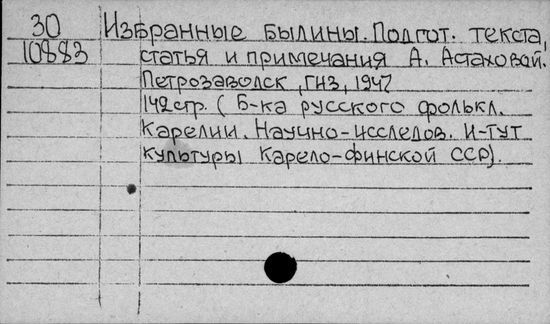 30 Избранные былины. Подгот. текста,
10883 статья и примечания А. Астаховой.
Петрозаводск, ГИЗ, 1947
142 стр. (Б-ка русского фолькл.
Карелии. Научно-исследов. и-тут
культуры Карело-финской ССР).